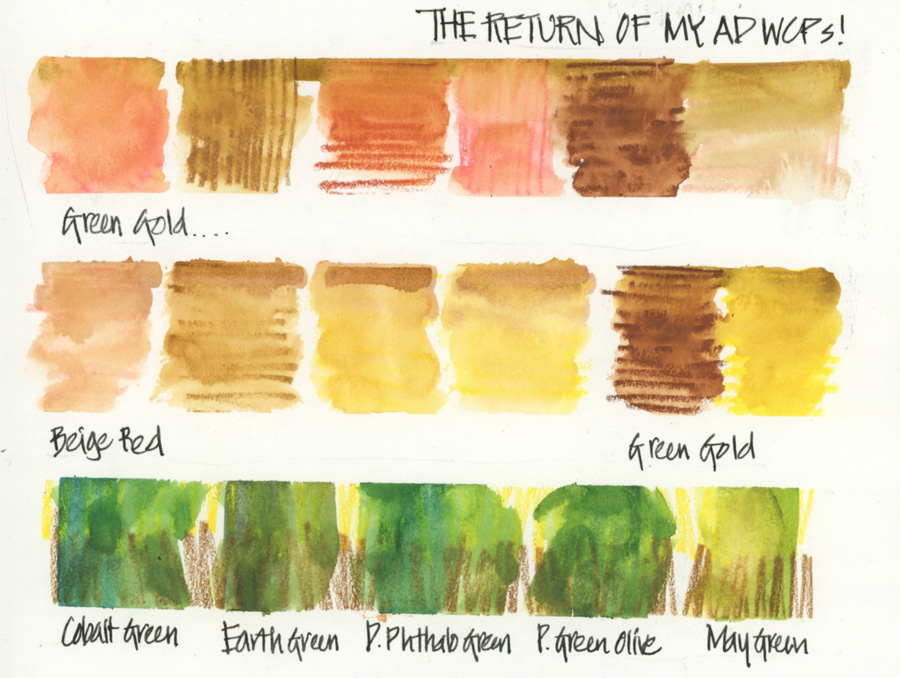 THE RETURN OF MY AD WCPs!
Green Gold....
Beige Red
Green Gold
Cobalt Green
Earth Green
D. Phthalo Green
P. Green Olive
May Green